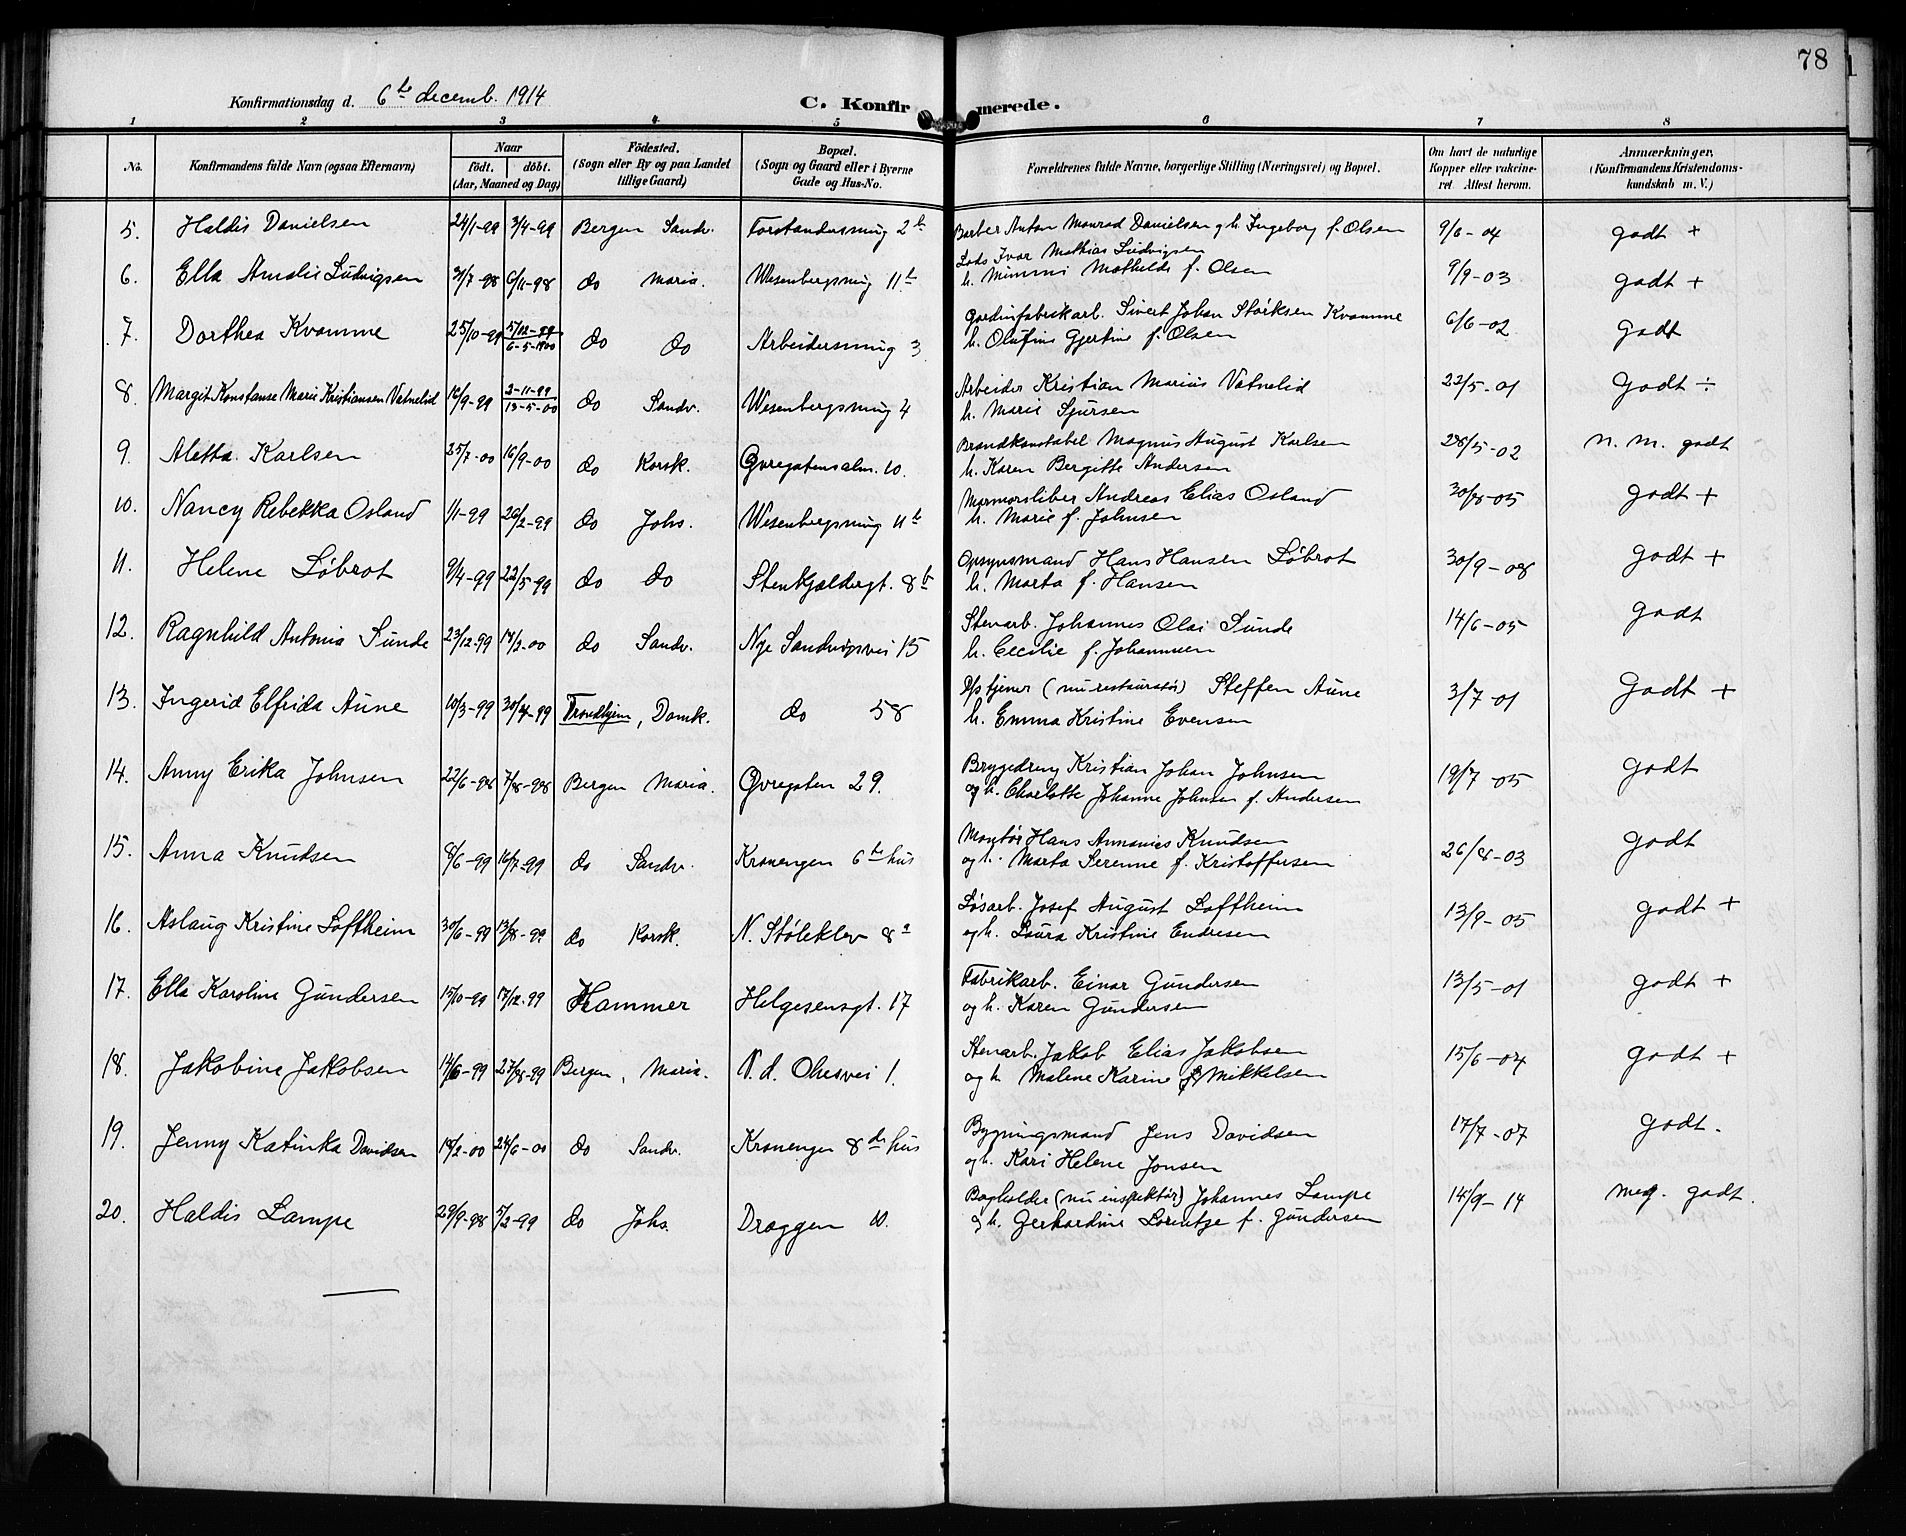 78
Konfirmationsdag d. 6te decemb. 1914
C. Konfirmerede.
1 2 3 4 5 6 7 8
No. Konfirmandens fulde Navn (ogsaa Efternavn) Naar født. døbt. (Aar, Maaned og Dag) Fødested. (Sogn eller By og paa Landet tillige Gaard) Bopæl. (Sogn og Gaard eller i Byerne Gade og Hus-No. Forældrenes fulde Navne, borgerlige Stilling (Næringsvei) og Bopæl. Om havt de naturlige Kopper eller vakcineret. Attest herom. Anmærkninger, (Konfirmandens Kristendomskundskab m. V.)
5. Haldis Danielsen 24/1-99 3/4-99 Bergen Sandv. Forstandersmug 2b Barber Anton Monrad Danielsen og h. Ingeborg f. Olsen 9/6-04 godt +
6. Ella Amalie Ludvigsen 31/7-98 6/11-98 do Maria. Wesenbergsmug 11b Lods Ivar Mathias Ludvigsen
h. Mimmi Mathilde f. Olsen 9/9-03 godt +
7. Dorthea Kvamme 25/10-99 5/12-99 6-5-1900 do do Arbeidersmug 3 Gardinfabrikarb. Sivert Johan Størksen Kvamme
h. Olufine Gjertine f. Olsen 6/6-02 godt
8. Margit Konstanse Marie Kristiansen Vatnelid 16/9-99 2-11-99 13-5-00 do Sandv. Wesenbergsmug 4 Arbeider Kristian Marius Vatnelid
h. Marie Sjursen 22/5-01 Godt ÷
9. Aletta Karlsen 25/7-00 16/9-00 do Korsk. Øvregatensalm. 10. Brandkonstabel Magnus August Karlsen
h. Karen Bergitte Andersen 28/5-02 n. m. godt
10. Nancy Rebekka Osland 1/1-99 26/2-99 do Johs. Wesenbergsmug 11b Marmorsliber Andreas Elias Osland
h. Marie f. Johnsen 30/8-05 godt +
11. Helene Løbrot 9/4-99 22/5-99 do do Stenkjeldergt. 8b Opsynsmand Hans Hansen Løbrot
h. Marta f. Hansen 30/9-08 godt +
12. Ragnhild Antonia Sunde 23/12-99 18/3-00 do Sandv. Nye Sandviksvei 15 Stenarb. Johannes Olai Sunde
h. Cecilie f. Johannesen 14/6-05 godt
13. Ingerid Elfrida Aune 10/3-99 30/4-99 Trondhjem, Domk. do 58 D/s tjener (nu restauratør) Steffen Aune
h. Emma Kristine Evensen 3/7-01 Godt +
14. Anny Erika Johnsen 22/6-98 7/8-98 Bergen Maria. Øvregaten 29. Bryggedreng Kristian Johan Johnsen
og h. Charlotte Johanne Johnsen f. Andersen 19/7-05 godt
15. Anna Knudsen 8/6-99 16/7-99 do Sandv. Kronengen 6te hus Montør Hans Annanias Knudsen
og h. Marta Serenne f. Kristoffersen 26/8-03 godt
16. Aslaug Kristine Loftheim 30/6-99 13/8-99 do Korsk. N. Stølekлev 8a Løsarb. Josef August Loftheim
og h. Laura Kristine Endresen 13/9-05 godt +
17. Ella Karoline Gundersen 15/10-99 17/12-99 Hammer Helgesensgt. 17 Fabrikarb. Einar Gundersen
og h. Karen Gundersen 13/5-01 godt +
18. Jakobine Jakobsen 14/6-99 27/8-99 Bergen, Maria. N. d. Ohesvei 1. Stenarb. Jakob Elias Jakobsen
og h. Malene Karine f. Mikkelsen 15/6-04 godt +
19. Jenny Katinka Davidsen 18/2-00 24/6-00 do Sandv. Kronengen 8de hus Bygningsmand Jens Davidsen
og h. Kari Helene Jonsen 17/7-07 godt.
20. Haldis Lampe 29/9-98 5/2-99 do Johs. Dreggen 10. Bogholder (nu inspektør) Johannes Lampe
& h. Gerhardine Lorentze f. Gundersen 14/9-14 meg. godt.